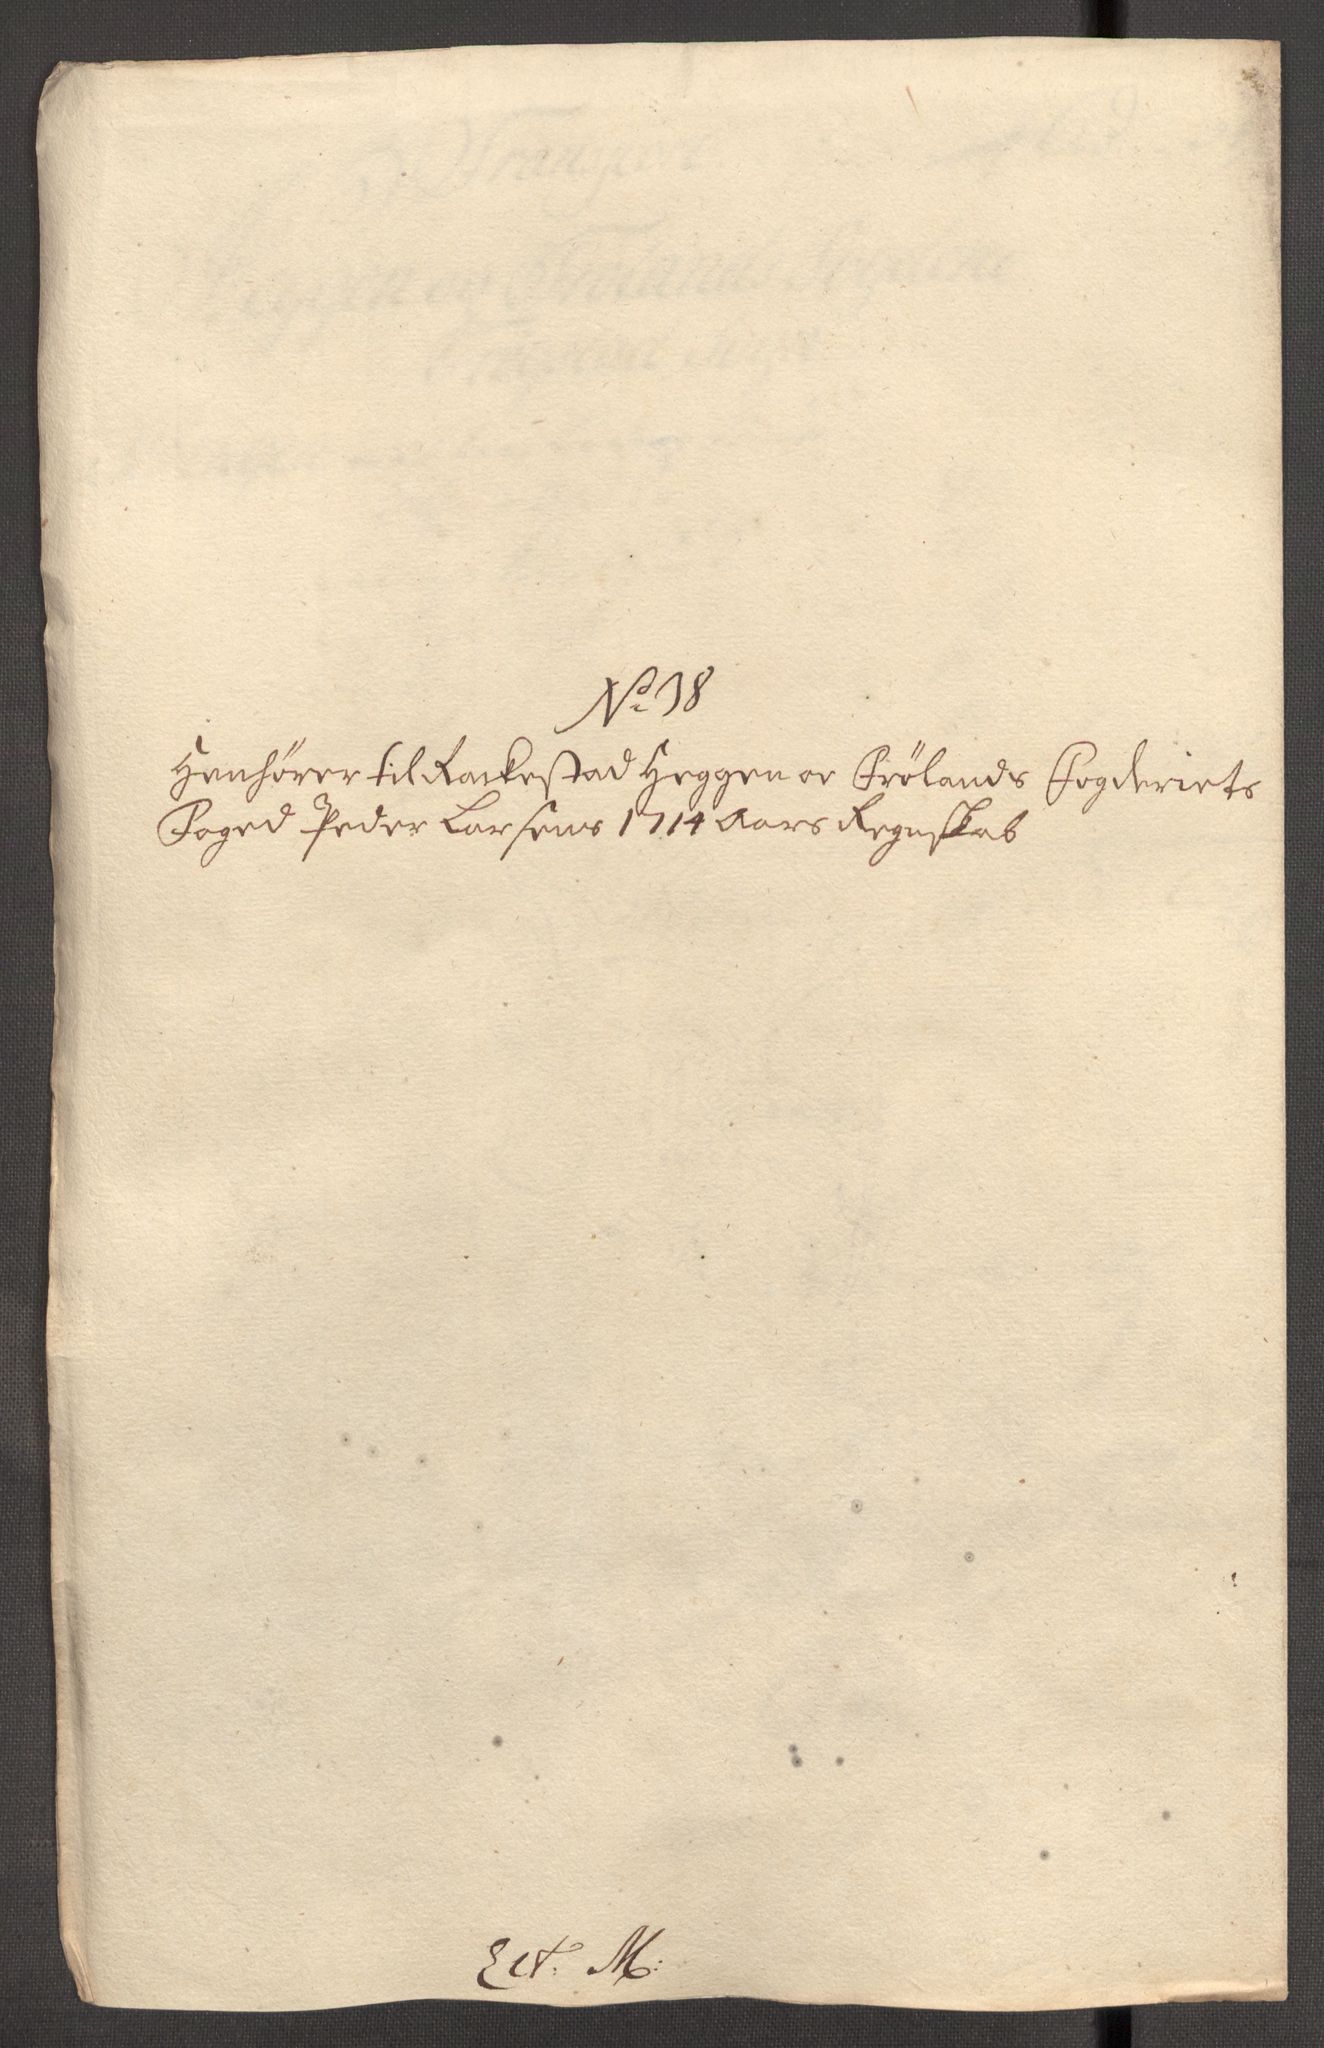 No 38
Henhører til Rackestad Heggen oc Frölands Fogderiets
Foged Peder Larsens 1714 Aars Regnskab
Lit. M: